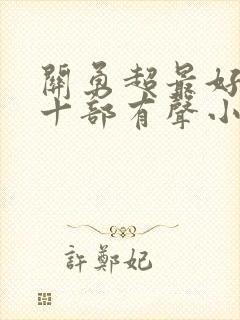 關勇超最好
十部有聲小
許鄭妃